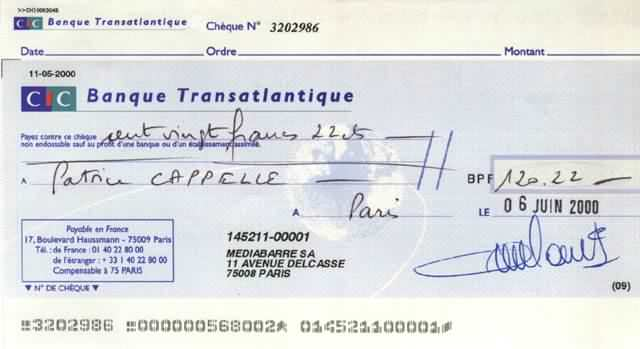 >>CH10063045
CIC Banque Transatlantique Chèque N° 3202986
Date Ordre Montant
11-05-2000
CIC Banque Transatlantique
Payez contre ce chèque cent vingt francs 22 cts
non endossable sauf au profit d'une banque ou d'un établissement assimilé.
A Patrice CAPPELLE BPF 120.22
A Paris LE 06 JUIN 2000
Payable en France
17, Boulevard Haussmann - 75009 Paris
Tél. : de France : 01 40 22 80 00
de l'étranger : + 33 1 40 22 80 00
Compensable à 75 PARIS
145211-00001
MEDIABARRE SA
11 AVENUE DELCASSE
75008 PARIS
▼ N° DE CHÈQUE ▼ (09)
3202986 000000568002 014521100001